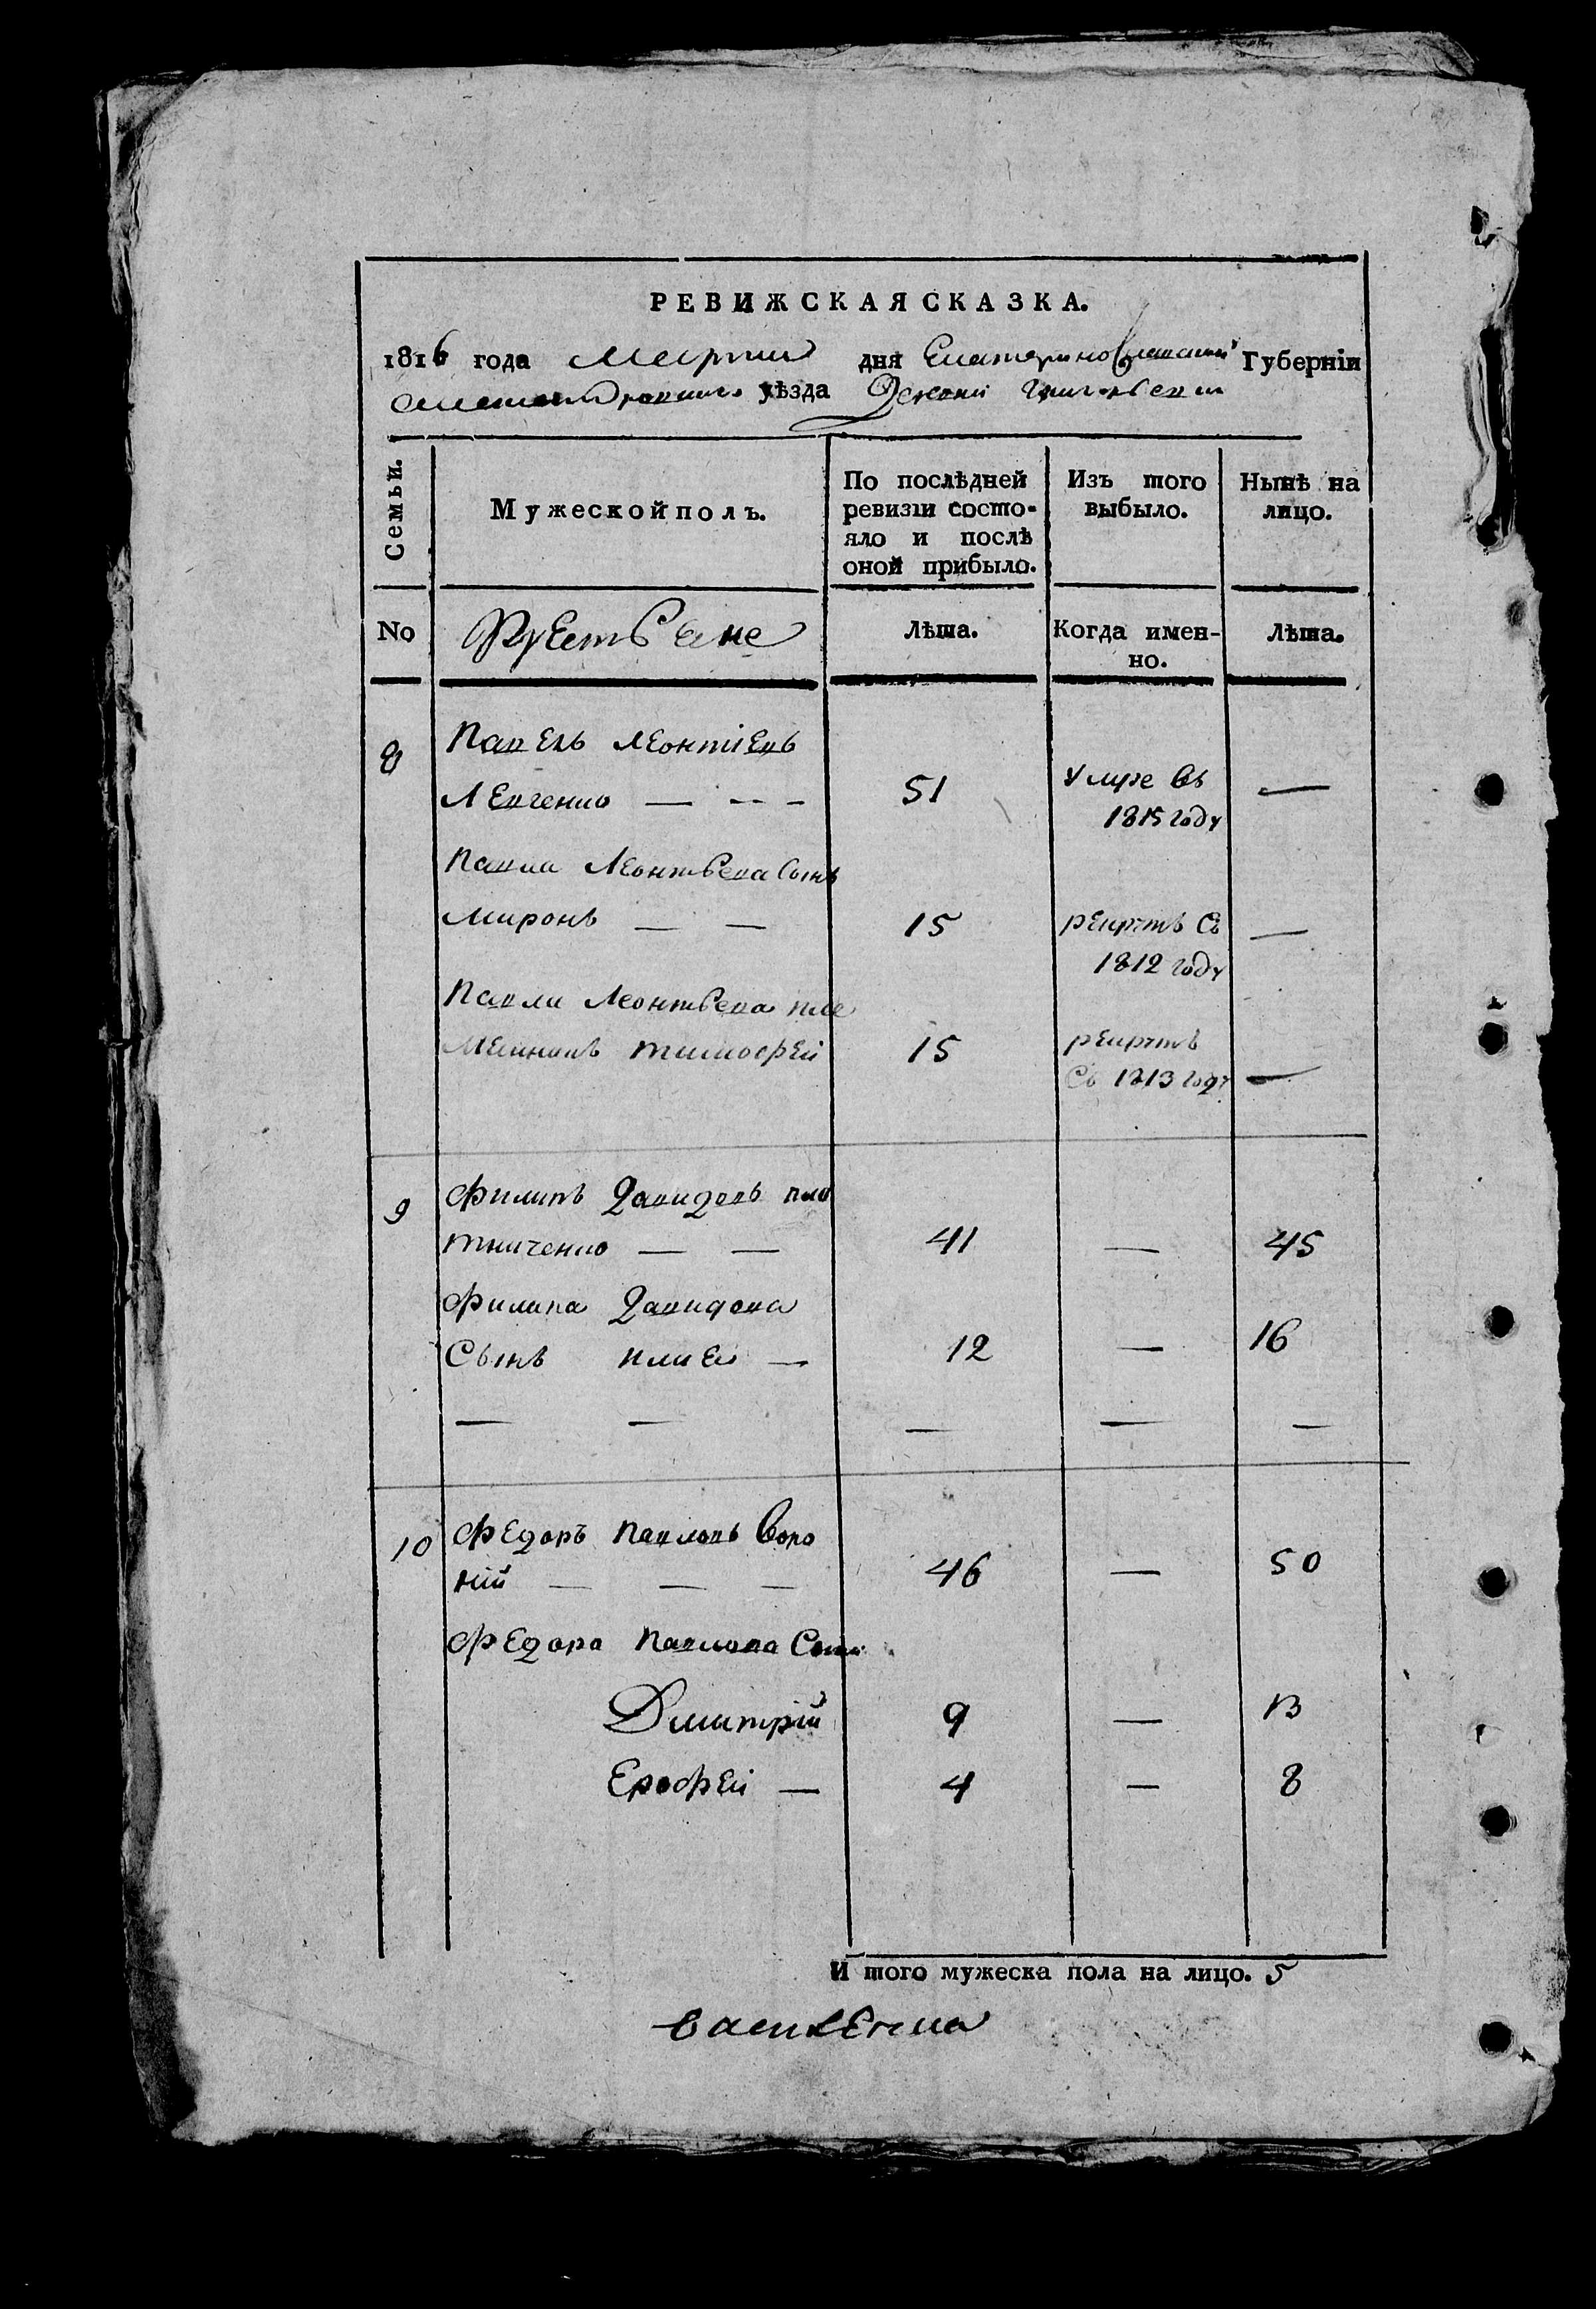 РЕВИЖСКАЯ СКАЗКА.
1816 года Марта дня Екатеринославской Губерніи
Александровского уѣзда
Семьи.
Мужеской полъ.
По послѣдней ревизіи состо-
яло и послѣ оной прибыло.
Изъ того выбыло.
Нынѣ на лицо.
No
Крестьяне
Лѣта.
Когда имен-
но.
Лѣта.
8 Павелъ Леонтіевъ
Левченко — — — 51 Умре въ —
1815 году
Павла Леонтьева Сынъ
Миронъ — — 15 рекрутъ Съ —
1812 году
Павла Леонтьева пле
меникъ тимофей 15 рекрутъ
Съ 1813 году —
9 Филипъ Давидовъ пло
тниченко — — 41 — 45
Филипа Давидова
Сынъ — 12 — 16
— — — — —
10 Федоръ Павловъ Воро
ній — — — 46 — 50
Федора Павлова Сыны
Дмитрій 9 — 13
Ерофей — 4 — 8
И того мужеска пола на лицо. 5